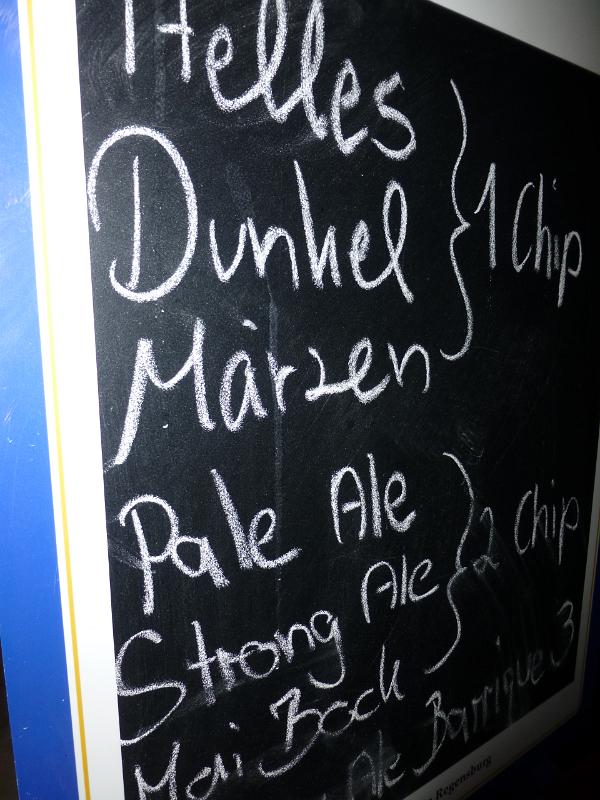 Helles
Dunkel } 1 Chip
Märzen
Pale Ale
Strong Ale } 2 Chip
Mai Bock
Ale Barrique 3
Regensburg